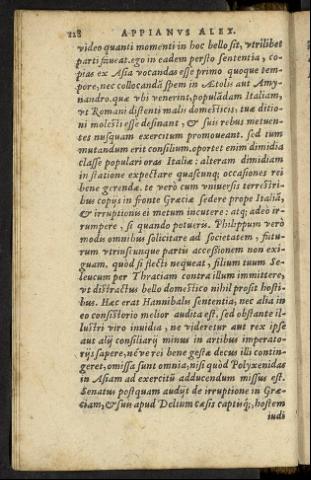 228 APPIANVS ALEX.
video quanti momenti in hoc bello sit, vtrilibet
parti faueat. ego in eadem persto sententia, co-
pias ex Asia vocandas esse primo quoque tem-
pore, nec collocandâ spem in Ætolis aut Amy-
nandro. quæ vbi venerint, populādam Italiam,
vt Romani distenti malis domesticis, tuæ ditio-
ni molesti esse desinant, & suis rebus metuen-
tes nusquam exercitum promoueant. sed tum
mutandum erit consilium. oportet enim dimidia
classe populari oras Italiæ: alteram dimidiam
in statione expectare quascunq; occasiones rei
bene gerendæ. te verò cum vniuersis terrestri-
bus copijs in fronte Græciæ sedere prope Italiā,
& irruptionis ei metum incutere: atq; adeò ir-
rumpere, si quando potueris. Philippum verò
modis omnibus solicitare ad societatem, futu-
rum vtriusunque partis accessionem non exi-
guam. quòd si flecti nequeat, filium tuum Se-
leucum per Thraciam contra illum immittere,
vt distractus bello domestico nihil prosit hosti-
bus. Hæc erat Hannibalis sententia, nec alia in
eo consistorio melior audita est. sed obstante il-
lustri viro inuidia, ne videretur aut rex ipse
aut alij consiliarij minus in artibus imperato-
rijs sapere, néve rei bene gestæ decus illi contin-
geret, omissa sunt omnia, nisi quòd Polyxenidas
in Asiam ad exercitū adducendum missus est.
Senatus postquam audijt de irruptione in Græ-
ciam, & suis apud Delium cæsis captisq;, hostem
iudi